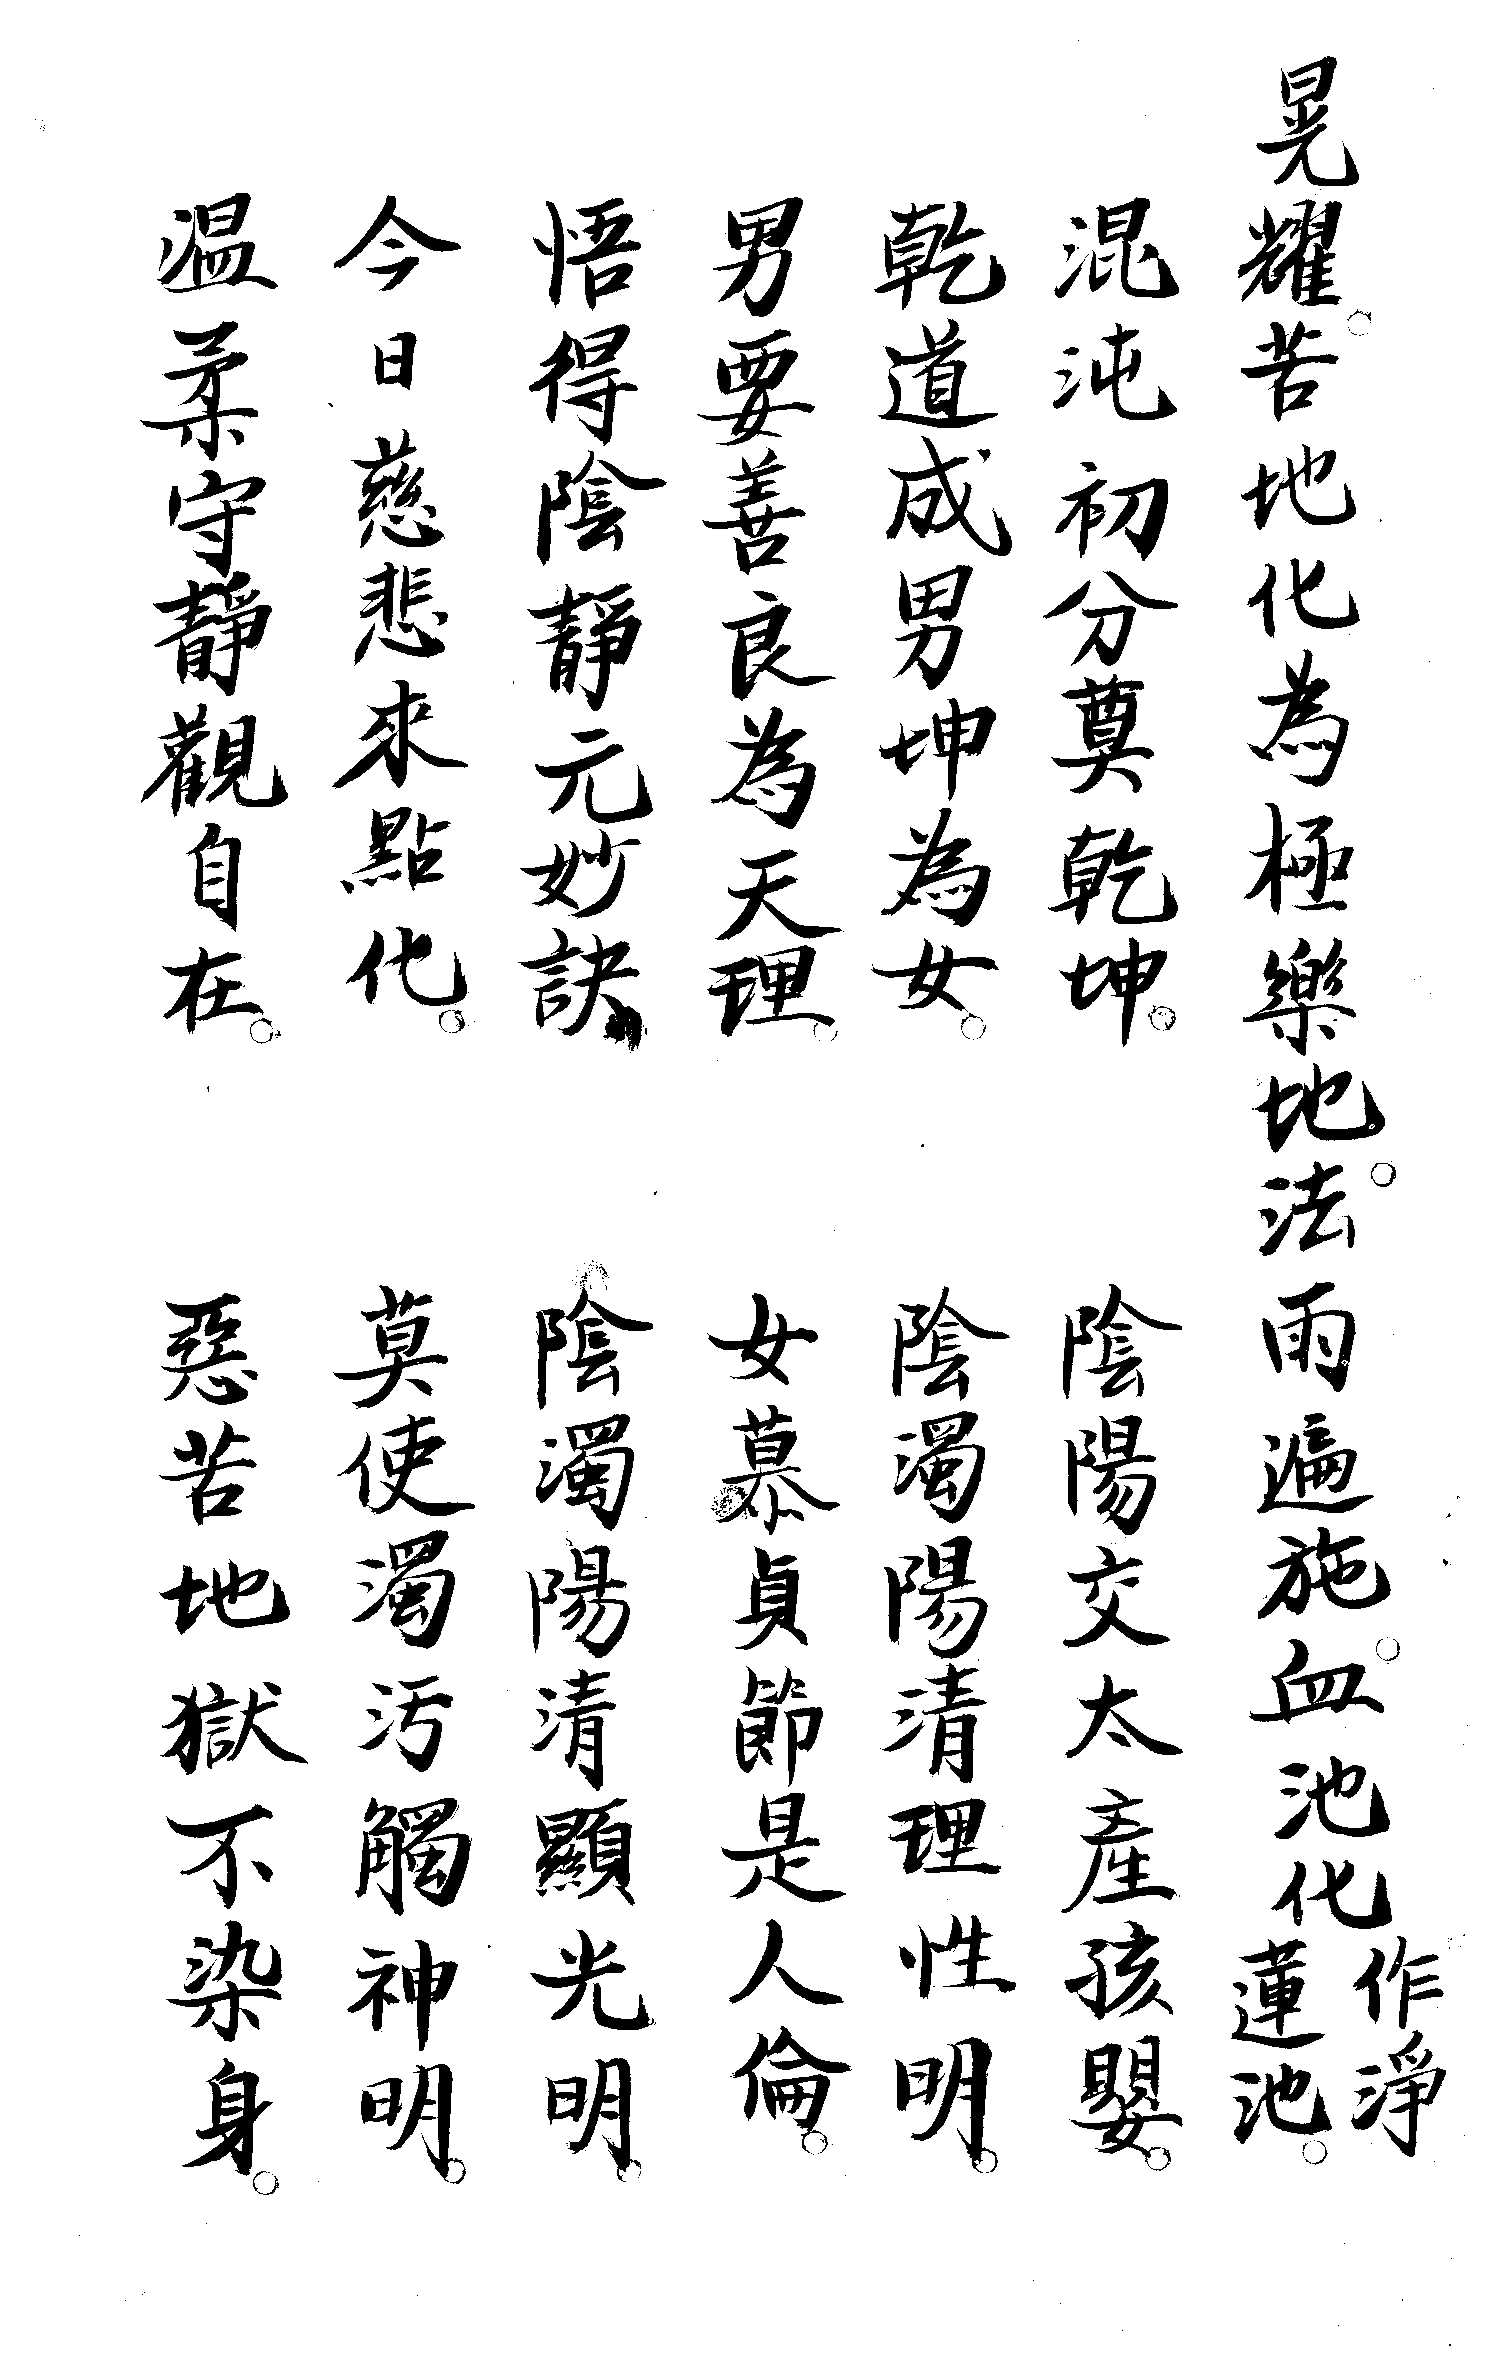 晃耀。苦地化為極樂地。法雨遍施。血池化作淨蓮池。
混沌初分奠乾坤。陰陽交太產孩嬰。
乾道成男坤為女。陰濁陽清理性明。
男要善良為天理。女慕貞節是人倫。
悟得陰靜元妙訣。陰濁陽清顯光明。
今日慈悲來點化。莫使濁污觸神明。
温柔守靜觀自在。惡苦地獄不染身。